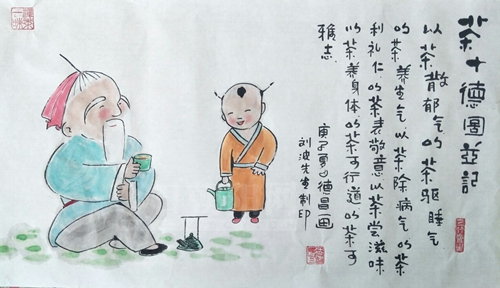 茶十德圖並記
以茶散郁气的茶驱睡气
的茶养生气以茶除病气的茶
利礼仁的茶表敬意以茶尝滋味
以茶养身体的茶可行道的茶可
雅志
庚子夏日德昌画
刘波先生制印